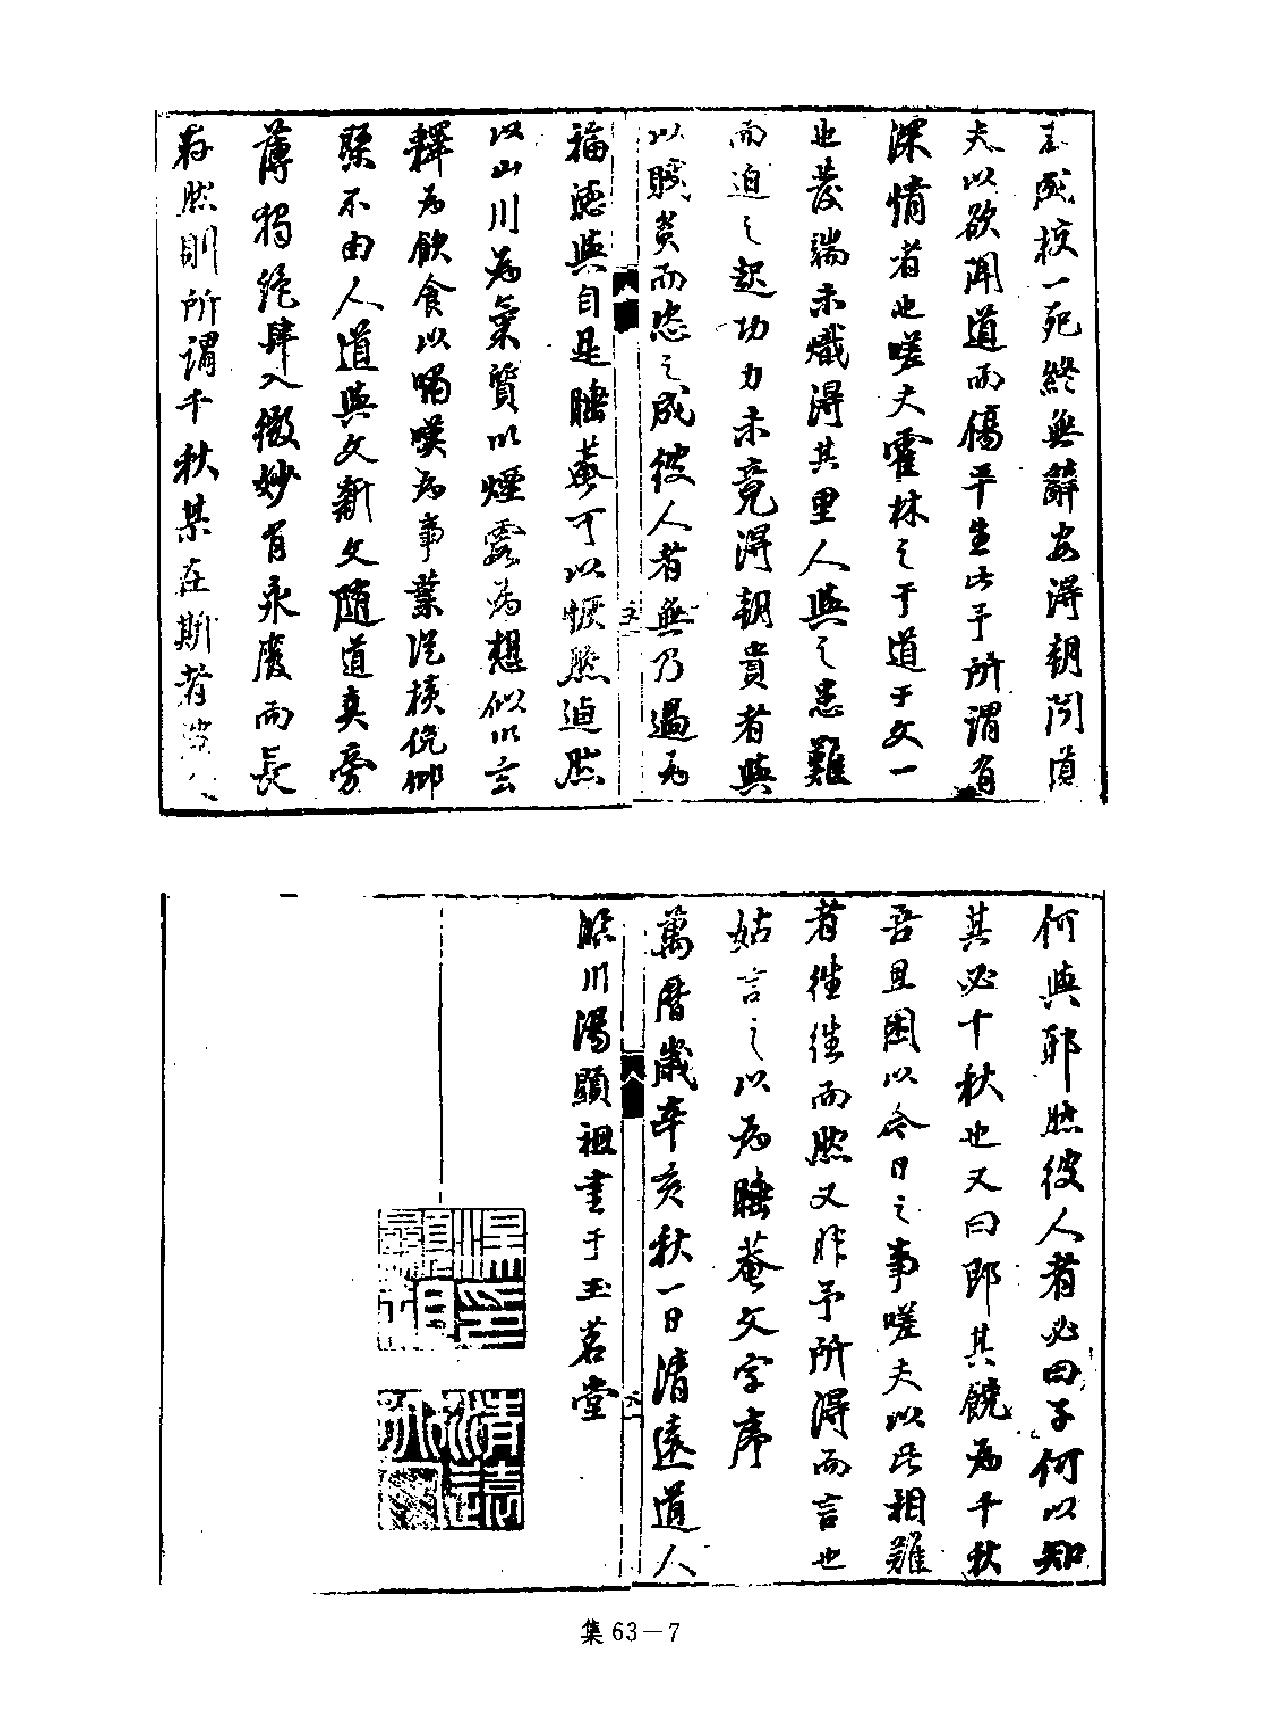 死終無辭安得朝聞道
夫以欲聞道而傷平生此于所謂有
深情者也嗟夫霍林之于道于文一
也發端未熾得其里人與之患難
而迫之起功力未竟得朝貴者與
以賤貧而恣之成彼人者無乃過為
福德與自是睡菴可以愜然迪然
以山川為氣質以煙雲為想似以玄
釋為飲食以喟嘆為事業從橫俛仰
槩不由人道與文新文隨道真旁
薄獨絕肆入微妙有永廢而長
存然則所謂千秋某在斯者彼人
何與耶然彼人者必曰子何以知
其必千秋也又曰即其饒為千秋
吾且困以今日之事嗟夫以此相難
者往往而然又非予所得而言也
姑言之以為睡菴文字序
萬曆歲辛亥秋一日清遠道人
臨川湯顯祖書于玉茗堂
集63－7